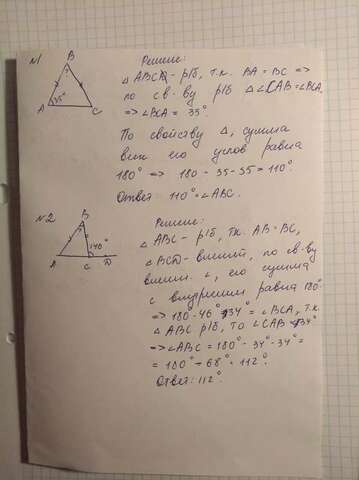 N1
B
A
35°
C
Решение:
△ ABC - р/б, т.к. BA = BC =>
по св-ву р/б △ ∠CAB = ∠BCA
=> ∠BCA = 35°.
По свойству △, сумма
всех его углов равна
180° => 180 - 35 - 35 = 110°.
Ответ: 110° = ∠ABC.
N2
B
146°
A
C
D
Решение:
△ ABC - р/б, т.к. AB = BC,
∠BCD - внешний, по св-ву
внешн. ∠, его сумма
с внутренним равна 180°
=> 180 - 46° = 34° = ∠BCA, т.к.
△ ABC р/б, то ∠CAB = 34°
=> ∠ABC = 180° - 34° - 34° =
= 180° - 68° = 112°.
Ответ: 112°.